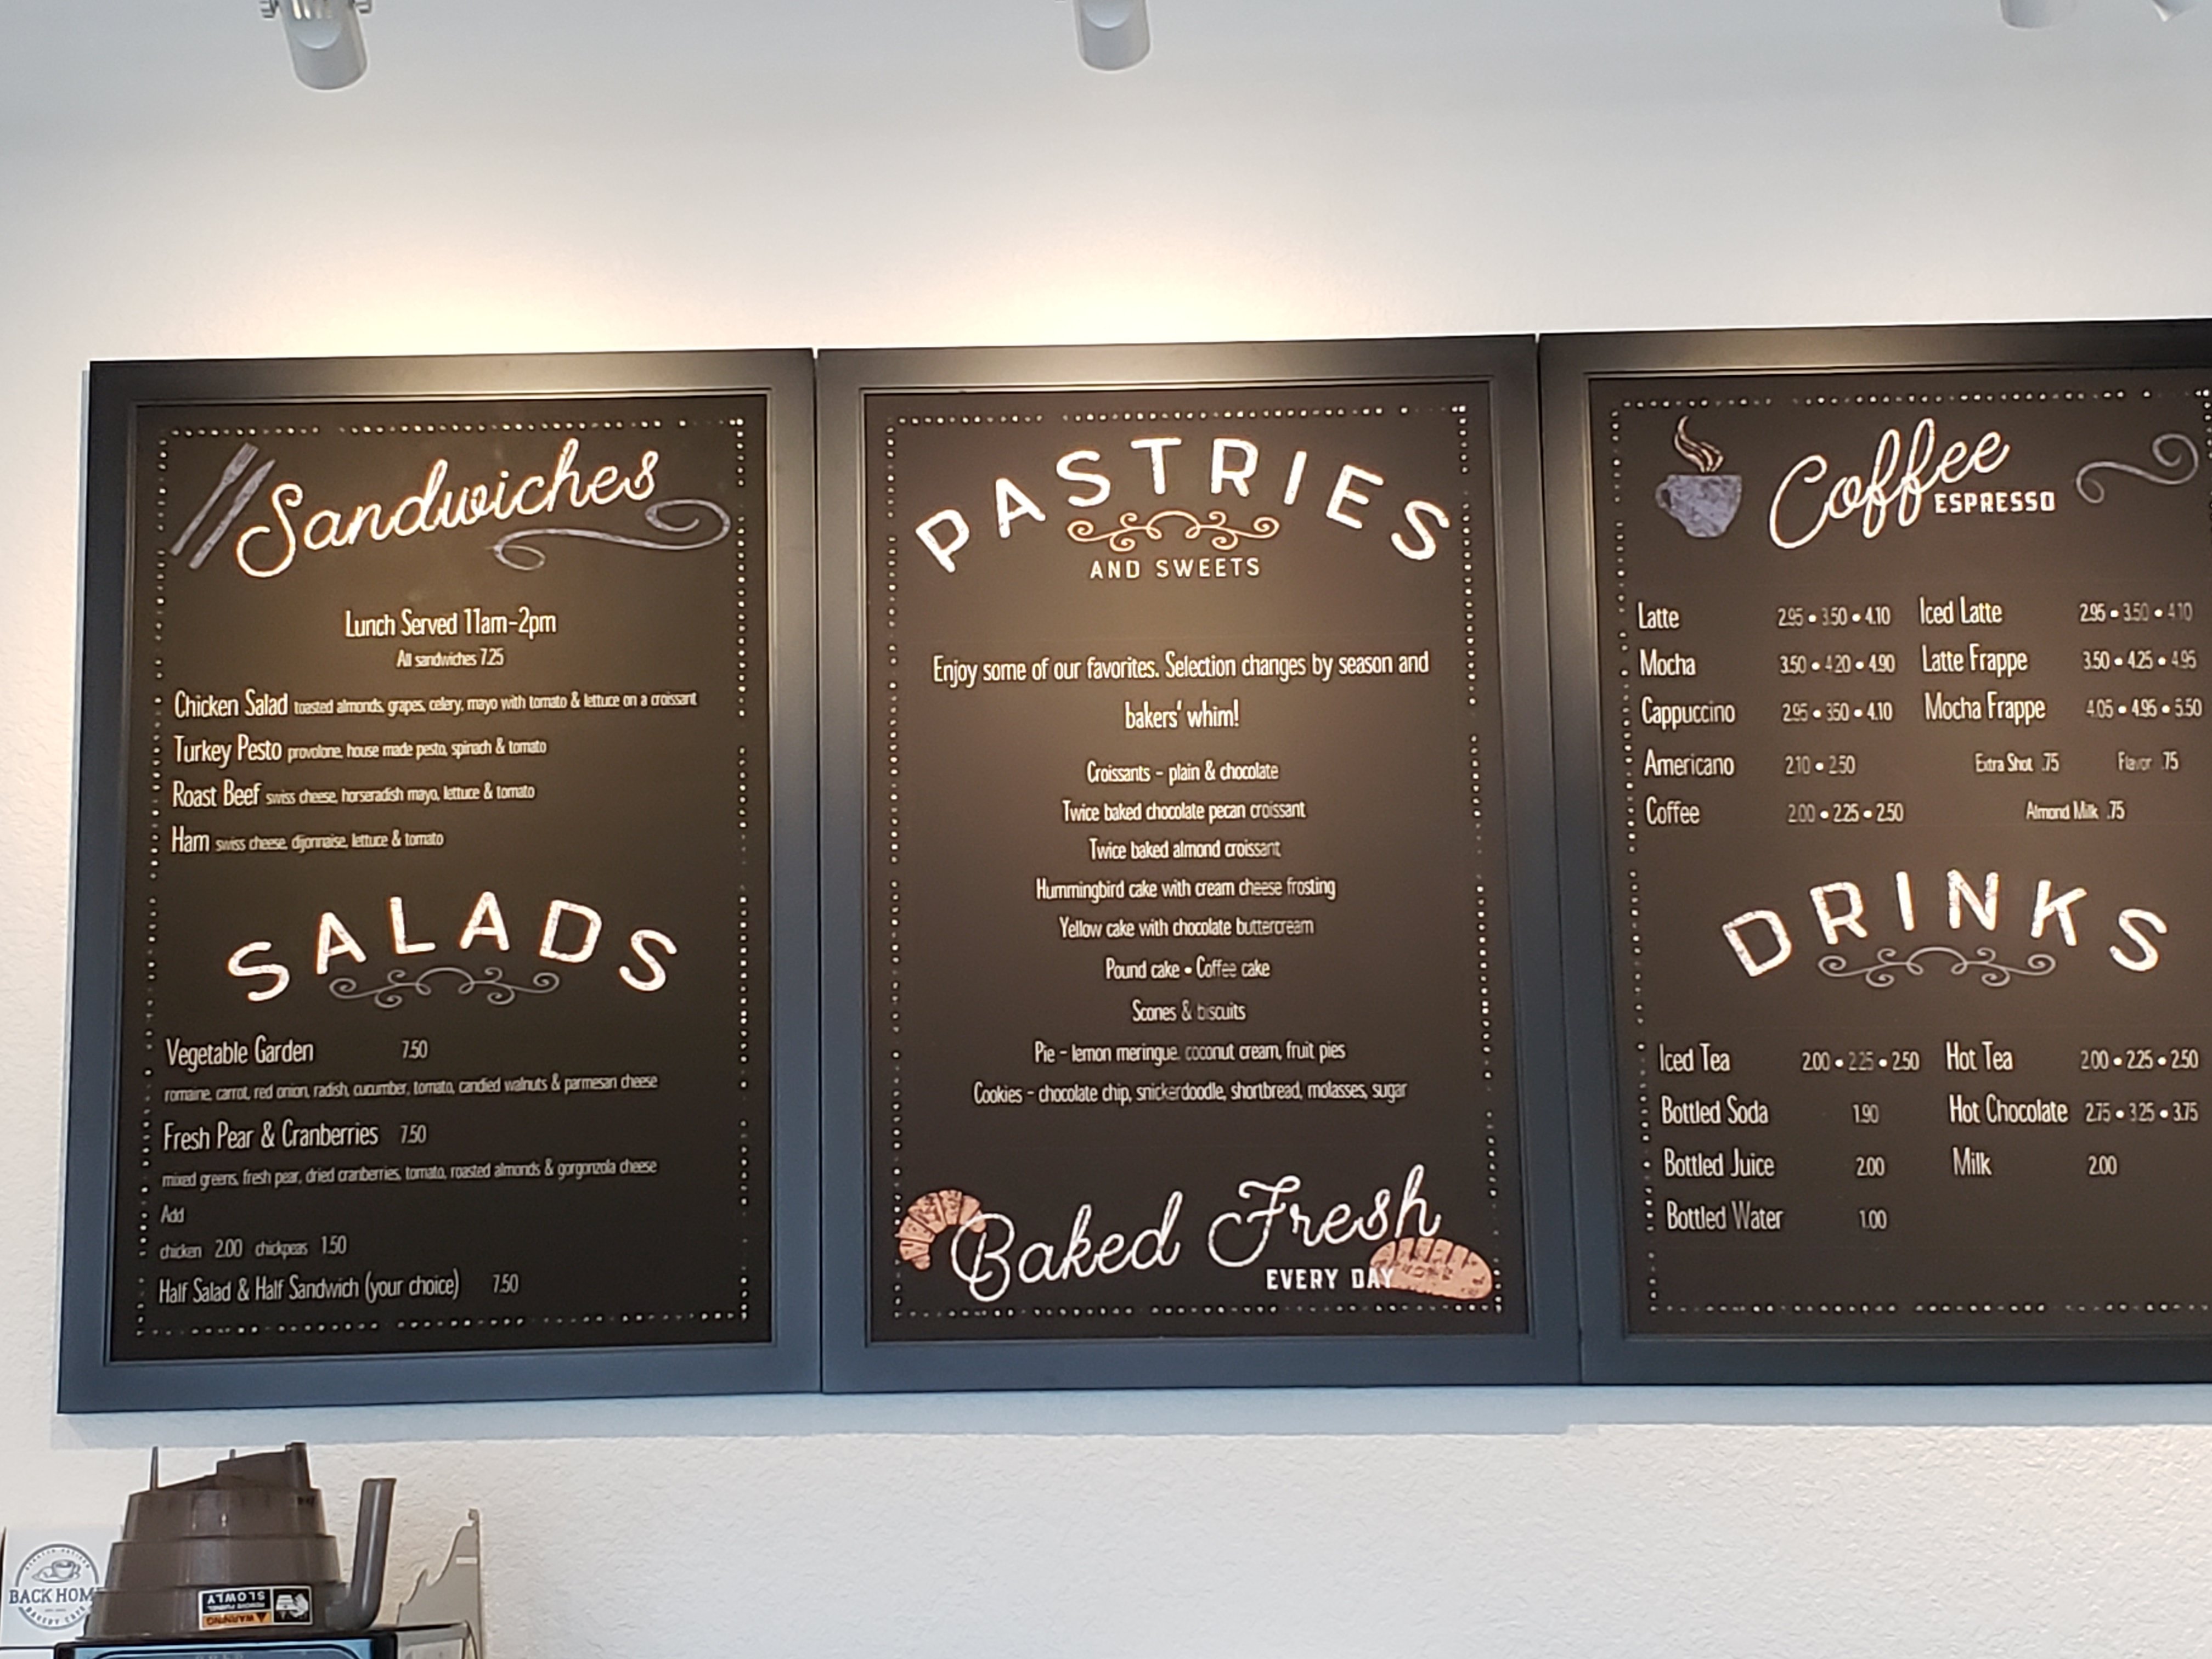 Sandwiches
Lunch Served 11am-2pm
All sandwiches 7.25
Chicken Salad toasted almonds, grapes, celery, mayo with tomato & lettuce on a croissant
Turkey Pesto provolone, house made pesto, spinach & tomato
Roast Beef swiss cheese, horseradish mayo, lettuce & tomato
Ham swiss cheese, dijonnaise, lettuce & tomato
SALADS
Vegetable Garden 7.50
romaine, carrot, red onion, radish, cucumber, tomato, candied walnuts & parmesan cheese
Fresh Pear & Cranberries 7.50
mixed greens, fresh pear, dried cranberries, tomato, roasted almonds & gorgonzola cheese
Add
chicken 2.00 chickpeas 1.50
Half Salad & Half Sandwich (your choice) 7.50
PASTRIES
AND SWEETS
Enjoy some of our favorites. Selection changes by season and
bakers' whim!
Croissants - plain & chocolate
Twice baked chocolate pecan croissant
Twice baked almond croissant
Hummingbird cake with cream cheese frosting
Yellow cake with chocolate buttercream
Pound cake • Coffee cake
Scones & biscuits
Pie - lemon meringue, coconut cream, fruit pies
Cookies - chocolate chip, snickerdoodle, shortbread, molasses, sugar
Baked Fresh
EVERY DAY
Coffee
ESPRESSO
Latte 2.95 • 3.50 • 4.10 Iced Latte 2.95 • 3.50 • 4.10
Mocha 3.50 • 4.20 • 4.90 Latte Frappe 3.50 • 4.25 • 4.95
Cappuccino 2.95 • 3.50 • 4.10 Mocha Frappe 4.05 • 4.95 • 5.50
Americano 2.10 • 2.50 Extra Shot .75 Flavor .75
Coffee 2.00 • 2.25 • 2.50 Almond Milk .75
DRINKS
Iced Tea 2.00 • 2.25 • 2.50 Hot Tea 2.00 • 2.25 • 2.50
Bottled Soda 1.90 Hot Chocolate 2.75 • 3.25 • 3.75
Bottled Juice 2.00 Milk 2.00
Bottled Water 1.00
BACK HOM
BAKERY CAFE
WARNING
REMOVE FUNNEL
SLOWLY